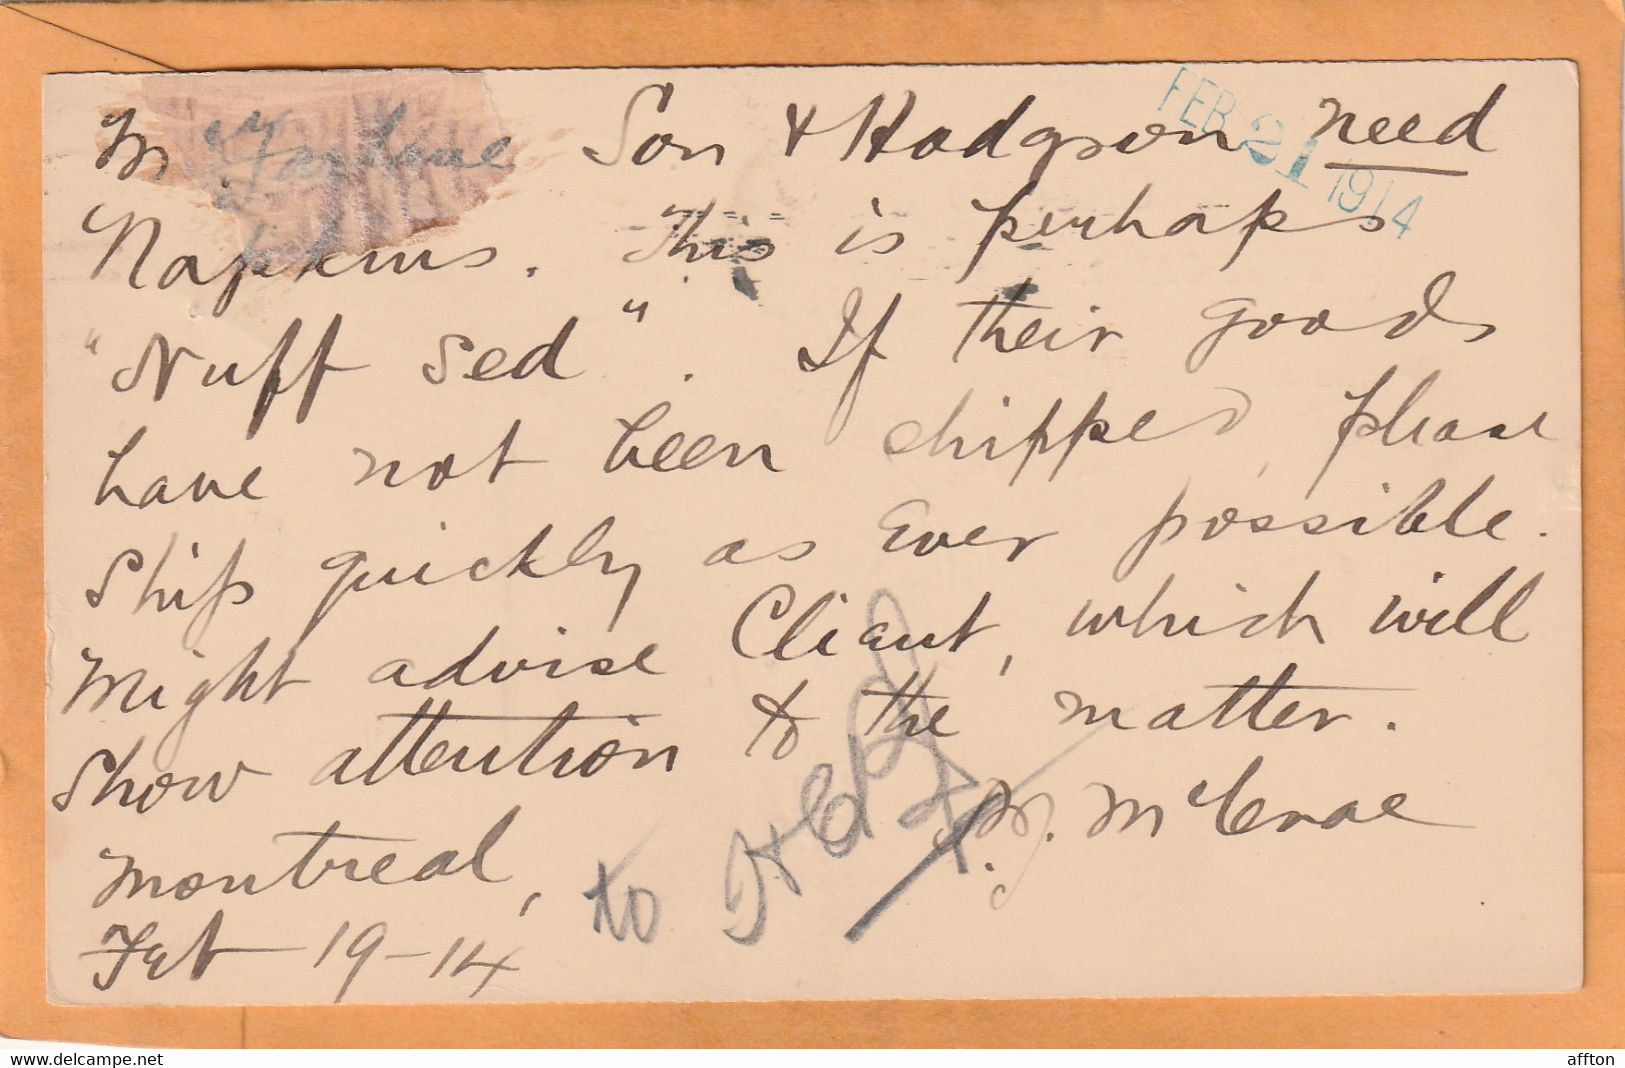 McFarlane Son & Hodgson need
FEB 21 1914
Napkins. This is perhaps
"Nuff Sed". If their goods
have not been shipped, please
Ship quickly as Ever possible.
Might advise Client, which will
Show attention to the matter.
W. McCrae
Montreal,
Feb 19-14
to
www.delcampe.net
affton